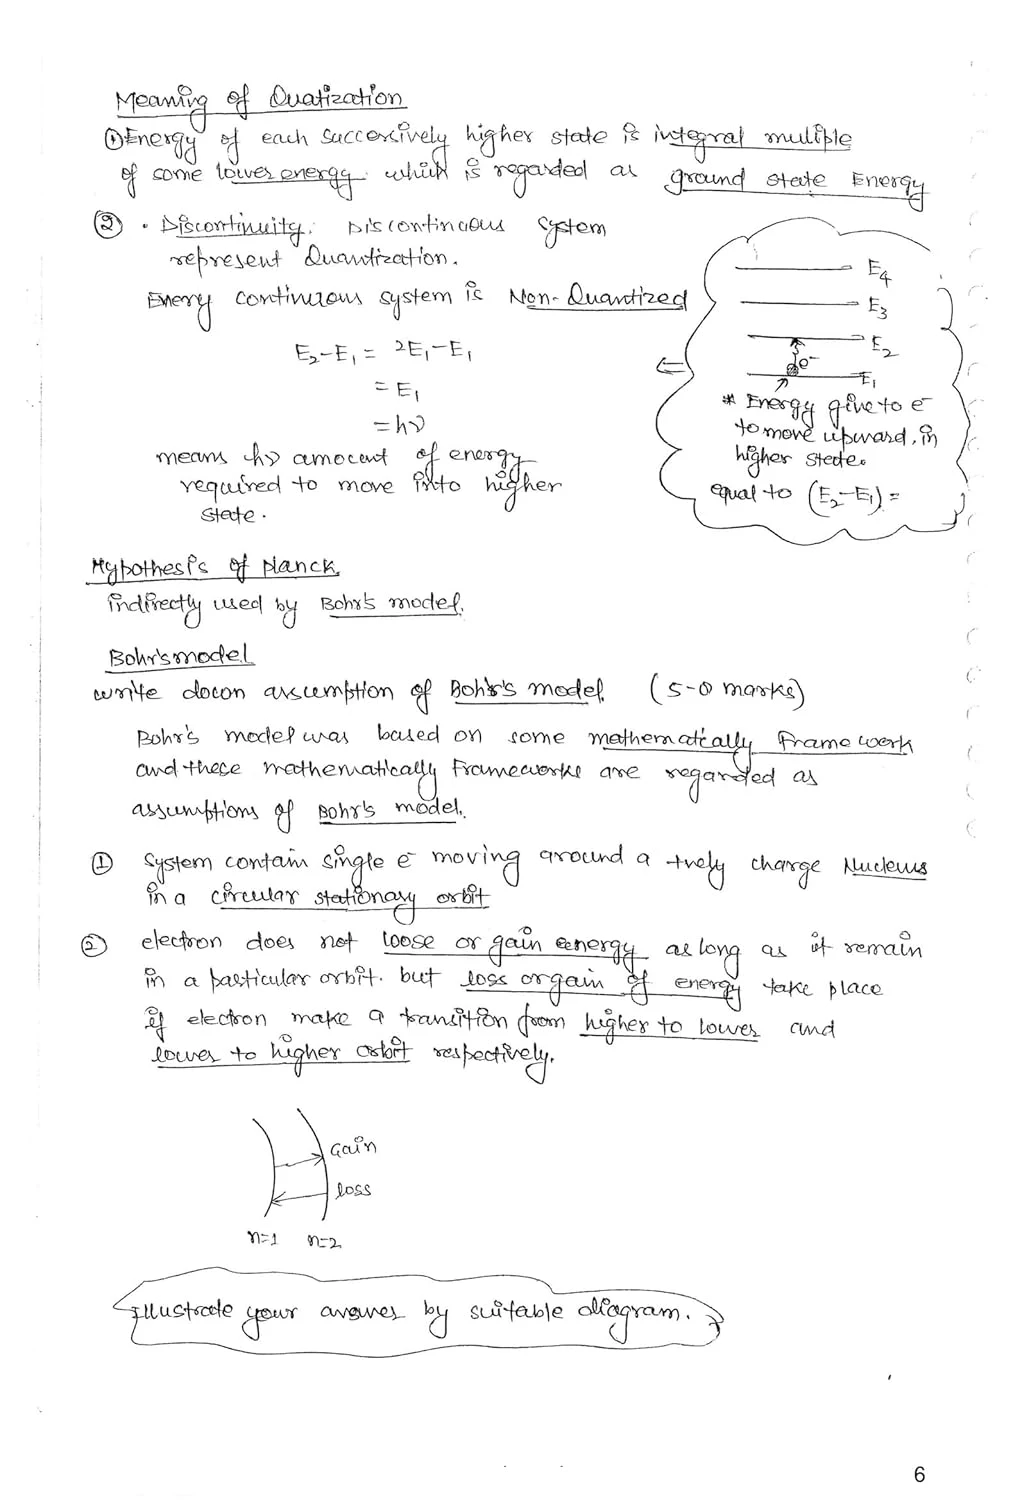 Meaning of Quatization
① Energy of each succersively higher state is integral muliple
of some lower energy. which is regarded as ground state Energy
② · Discontinuity. Discontinuous system
represent Quantization.
Energy continuous system is Non-Quantized
E₂-E₁ = 2E₁-E₁
= E₁
= hν
means hν amocent of energy
required to move into higher
state.
E₄
E₃
E₂
e⁻
E₁
* Energy give to e⁻
to move upward, in
higher state.
equal to (E₂-E₁) =
Hypothesis of planck
indirectly used by Bohr's model.
Bohr's model
write down assumption of Bohr's model. (5-0 marks)
Bohr's model was based on some mathematically Frame work
and these mathematically Frameworks are regarded as
assumptions of Bohr's model.
① System contain single e⁻ moving around a +vely charge Nucleus
in a circular stationary orbit
② electron does not loose or gain energy as long as it remain
in a particular orbit. but loss or gain of energy take place
if electron make a transition from higher to lower and
lower to higher orbit respectively.
Gain
loss
n=1 n=2
Illustrate your answer by suitable diagram.
6